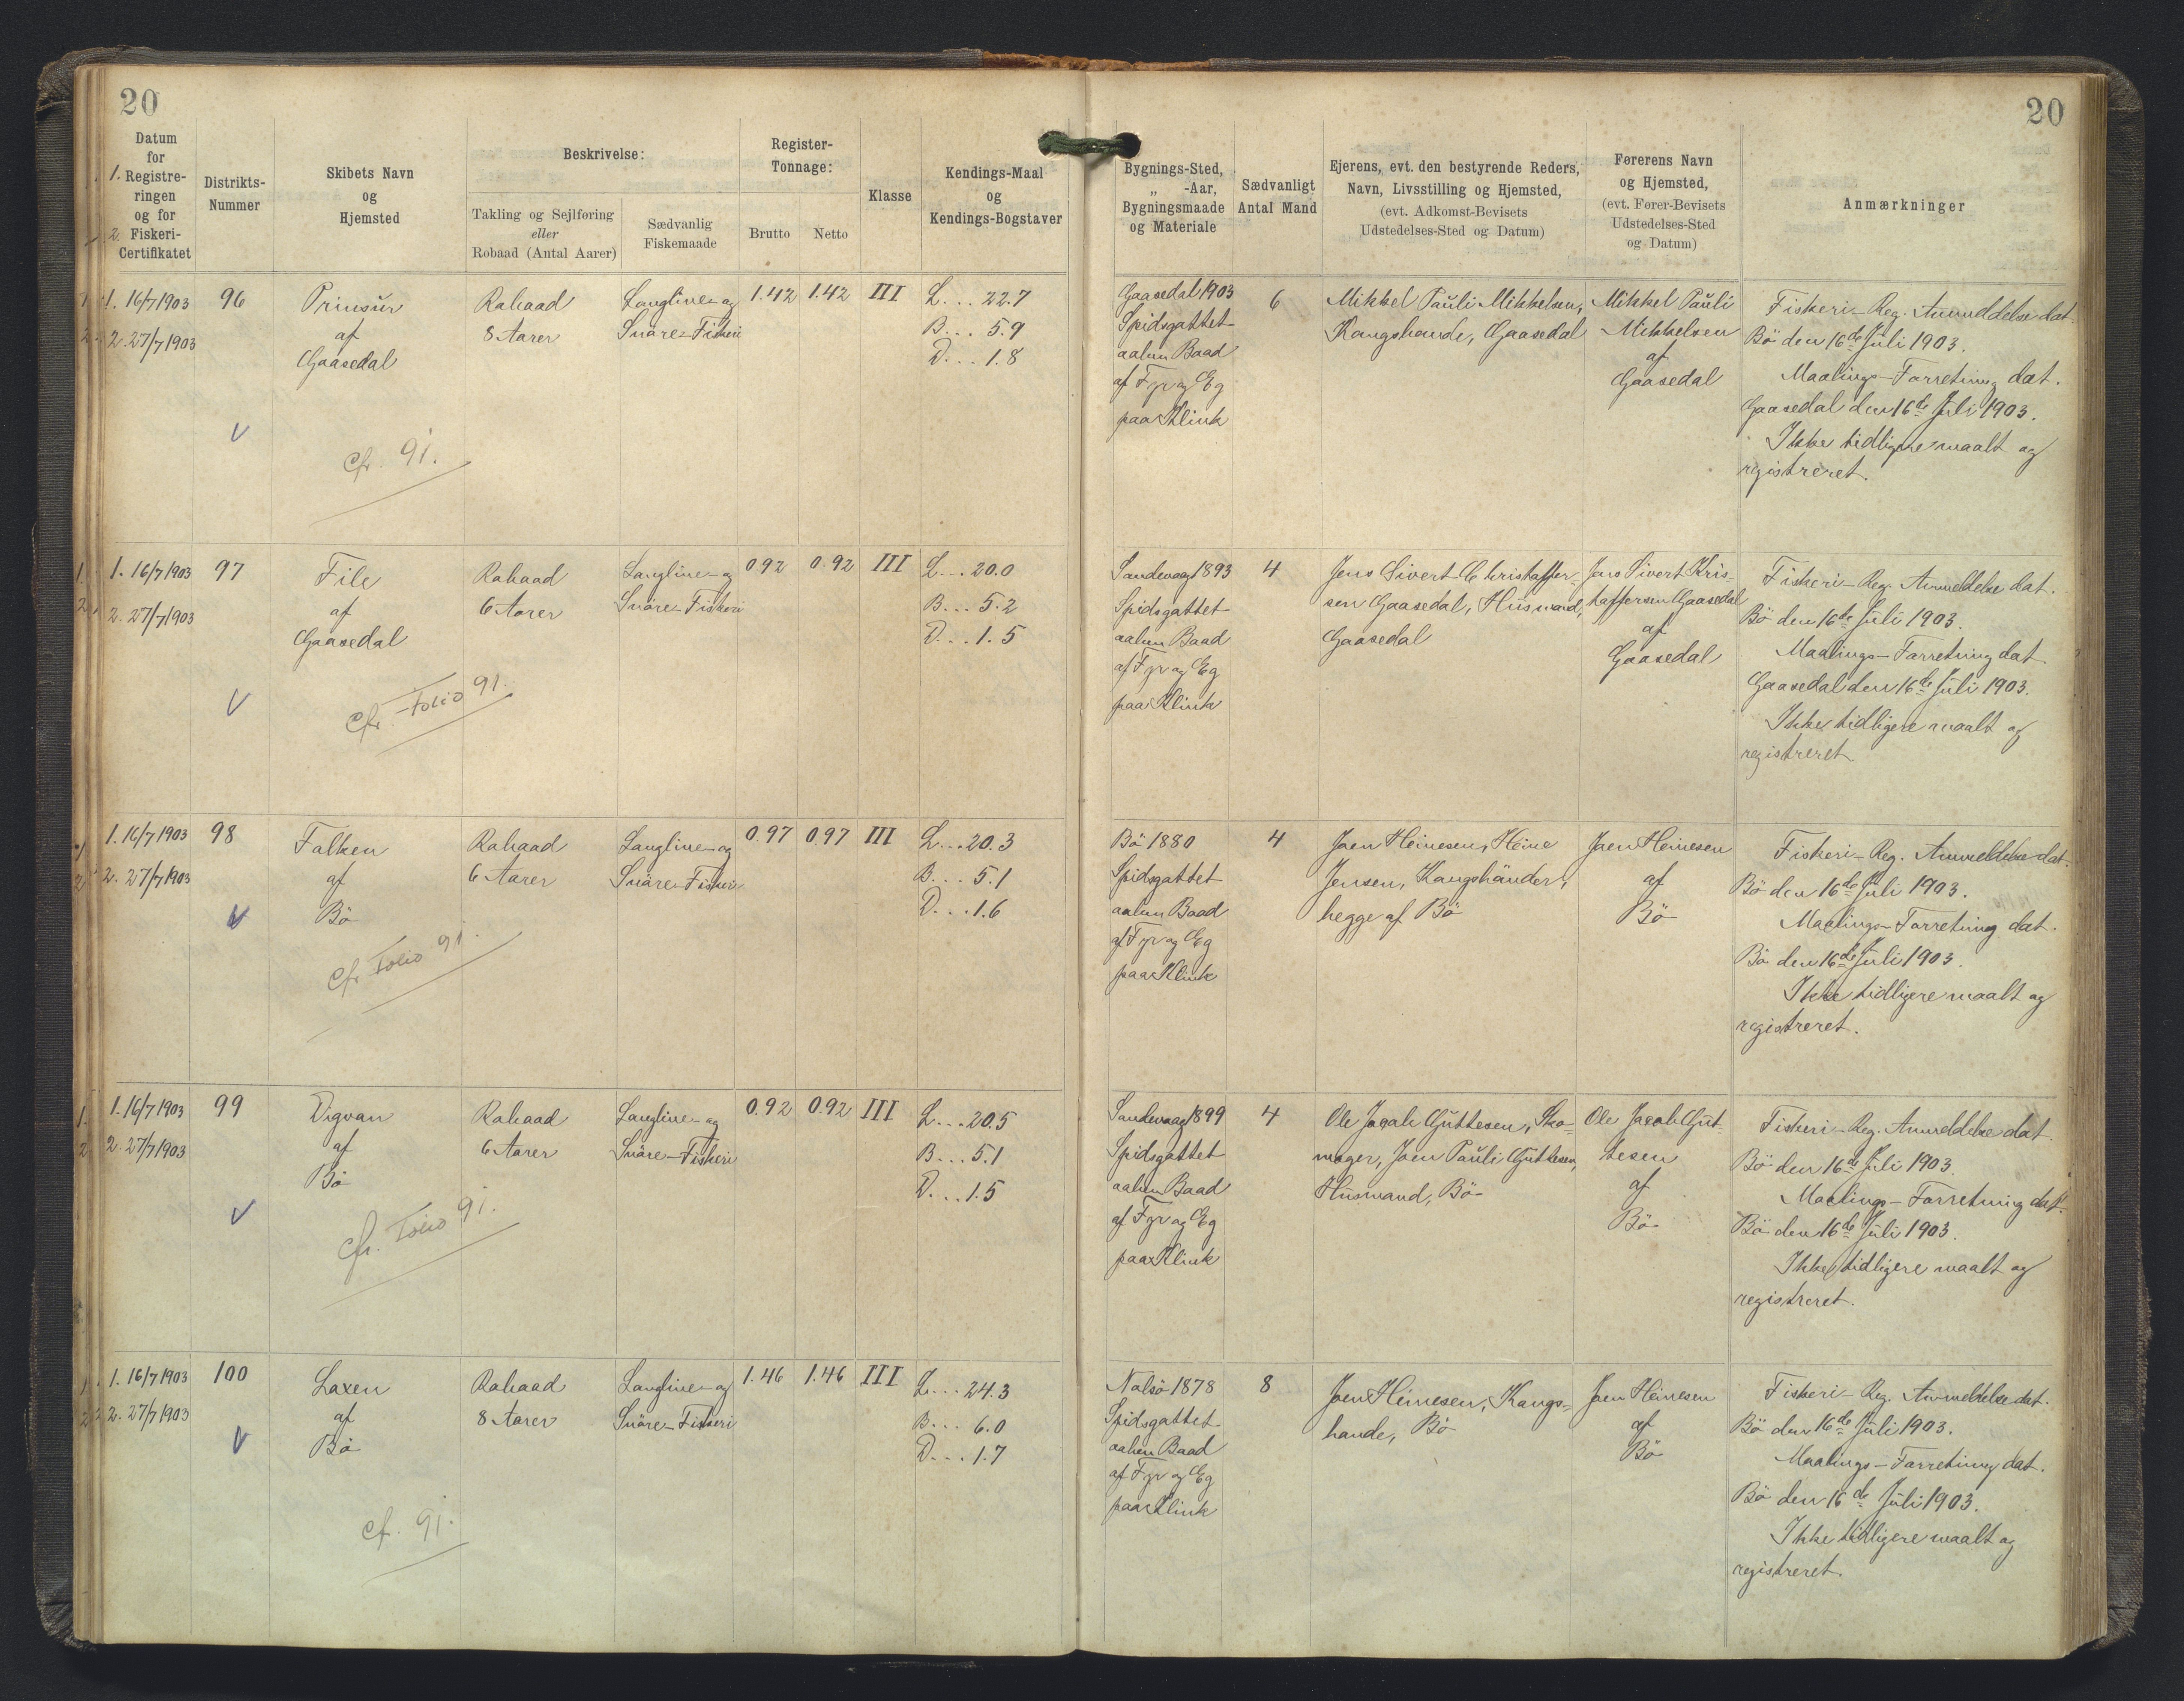 20
20
Datum
for
1. Registre-
ringen
og for
2. Fiskeri-
Certifikatet
Distrikts-
Nummer
Skibets Navn
og
Hjemsted
Beskrivelse:
Takling og Sejlføring
eller
Robaad (Antal Aarer)
Sædvanlig
Fiskemaade
Register-
Tonnage:
Brutto
Netto
Klasse
Kendings-Maal
og
Kendings-Bogstaver
Bygnings-Sted,
„ -Aar,
Bygningsmaade
og Materiale
Sædvanligt
Antal Mand
Ejerens, evt. den bestyrende Reders,
Navn, Livsstilling og Hjemsted,
(evt. Adkomst-Bevisets
Udstedelses-Sted og Datum)
Førerens Navn
og Hjemsted,
(evt. Fører-Bevisets
Udstedelses-Sted
og Datum)
Anmærkninger
1. 16/7 1903
2. 27/7 1903
96
Prinsur
af
Gaasedal
cfr. 91.
Robaad
8 Aarer
Langline- og
Snöre-Fiskeri
1.42
1.42
III
L... 22.7
B... 5.9
D... 1.8
Gaasedal 1903
Spidsgattet
aaben Baad
af Fyr og Eg
paa Klink
6
Mikkel Pauli Mikkelsen,
Kongsbonde, Gaasedal
Mikkel Pauli
Mikkelsen
af
Gaasedal
Fiskeri-Reg. Anmeldelse dat.
Bö den 16de Juli 1903.
Maalings-Forretning dat.
Gaasedal den 16de Juli 1903.
Ikke tidligere maalt og
registreret.
1. 16/7 1903
2. 27/7 1903
97
File
af
Gaasedal
cfr. Folio 91.
Robaad
6 Aarer
Langline- og
Snöre-Fiskeri
0.92
0.92
III
L... 20.0
B... 5.2
D... 1.5
Sandevaag 1893
Spidsgattet
aaben Baad
af Fyr og Eg
paa Klink
4
Jens Sivert Christoffer-
sen Gaasedal, Husmand,
Gaasedal
Jens Sivert Kris-
toffersen Gaasedal
af
Gaasedal
Fiskeri-Reg. Anmeldelse dat.
Bö den 16de Juli 1903.
Maalings-Forretning dat.
Gaasedal den 16de Juli 1903.
Ikke tidligere maalt og
registreret.
1. 16/7 1903
2. 27/7 1903
98
Falken
af
Bö
cfr. Folio 91.
Robaad
6 Aarer
Langline- og
Snöre-Fiskeri
0.97
0.97
III
L... 20.3
B... 5.1
D... 1.6
Bö 1880
Spidsgattet
aaben Baad
af Fyr og Eg
paa Klink
4
Joen Heinesen, Heine
Jensen, Kongsbönder,
begge af Bö
Joen Heinesen
af
Bö
Fiskeri-Reg. Anmeldelse dat.
Bö den 16de Juli 1903.
Maalings-Forretning dat.
Bö den 16de Juli 1903.
Ikke tidligere maalt og
registreret.
1. 16/7 1903
2. 27/7 1903
99
Digvan
af
Bö
cfr. Folio 91.
Robaad
6 Aarer
Langline- og
Snöre-Fiskeri
0.92
0.92
III
L... 20.5
B... 5.1
D... 1.5
Sandevaag 1899
Spidsgattet
aaben Baad
af Fyr og Eg
paa Klink
4
Ole Jacob Guttesen, Sko-
mager, Joen Pauli Guttesen,
Husmand, Bö
Ole Jacob Gut-
tesen
af
Bö
Fiskeri-Reg. Anmeldelse dat.
Bö den 16de Juli 1903.
Maalings-Forretning dat.
Bö den 16de Juli 1903.
Ikke tidligere maalt og
registreret.
1. 16/7 1903
2. 27/7 1903
100
Laxen
af
Bö
cf. 91.
Robaad
8 Aarer
Langline- og
Snöre-Fiskeri
1.46
1.46
III
L... 24.3
B... 6.0
D... 1.7
Nolsö 1878
Spidsgattet
aaben Baad
af Fyr og Eg
paa Klink
8
Joen Heinesen, Kongs-
bonde, Bö
Joen Heinesen
af
Bö
Fiskeri-Reg. Anmeldelse dat.
Bö den 16de Juli 1903.
Maalings-Forretning dat.
Bö den 16de Juli 1903.
Ikke tidligere maalt og
registreret.